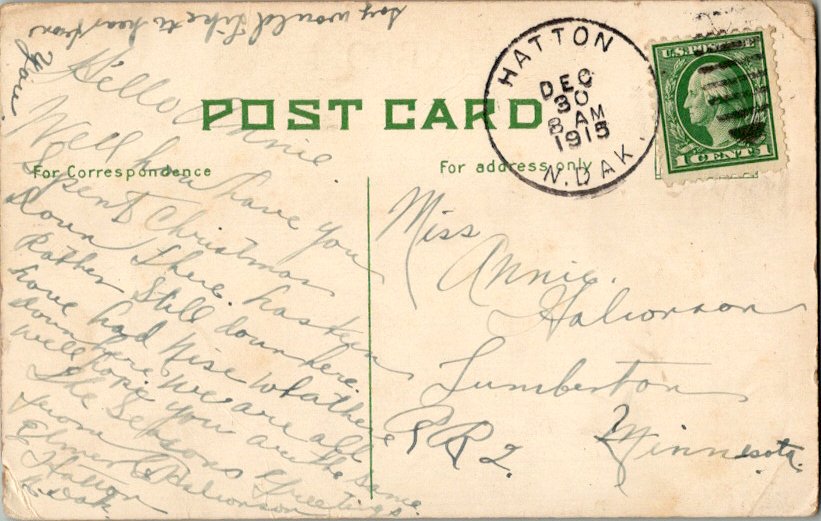 say would like to hear from
you
POST CARD
For Correspondence
For address only
HATTON
DEC
30
8 AM
1915
N. DAK.
U.S. POSTAGE
1 CENTS 1
Hello Annie.
Well how have you
Spent Christmas
down there. has been
Rather Still down here.
have had Nise Whather
down here We are all
well hope you are the same
The Seasons Greetings.
from
Elmer Halvorson
Hatton
N. Dak.
Miss
Annie.
Halvorson
Lumberton
RR 2.
Minnesota.